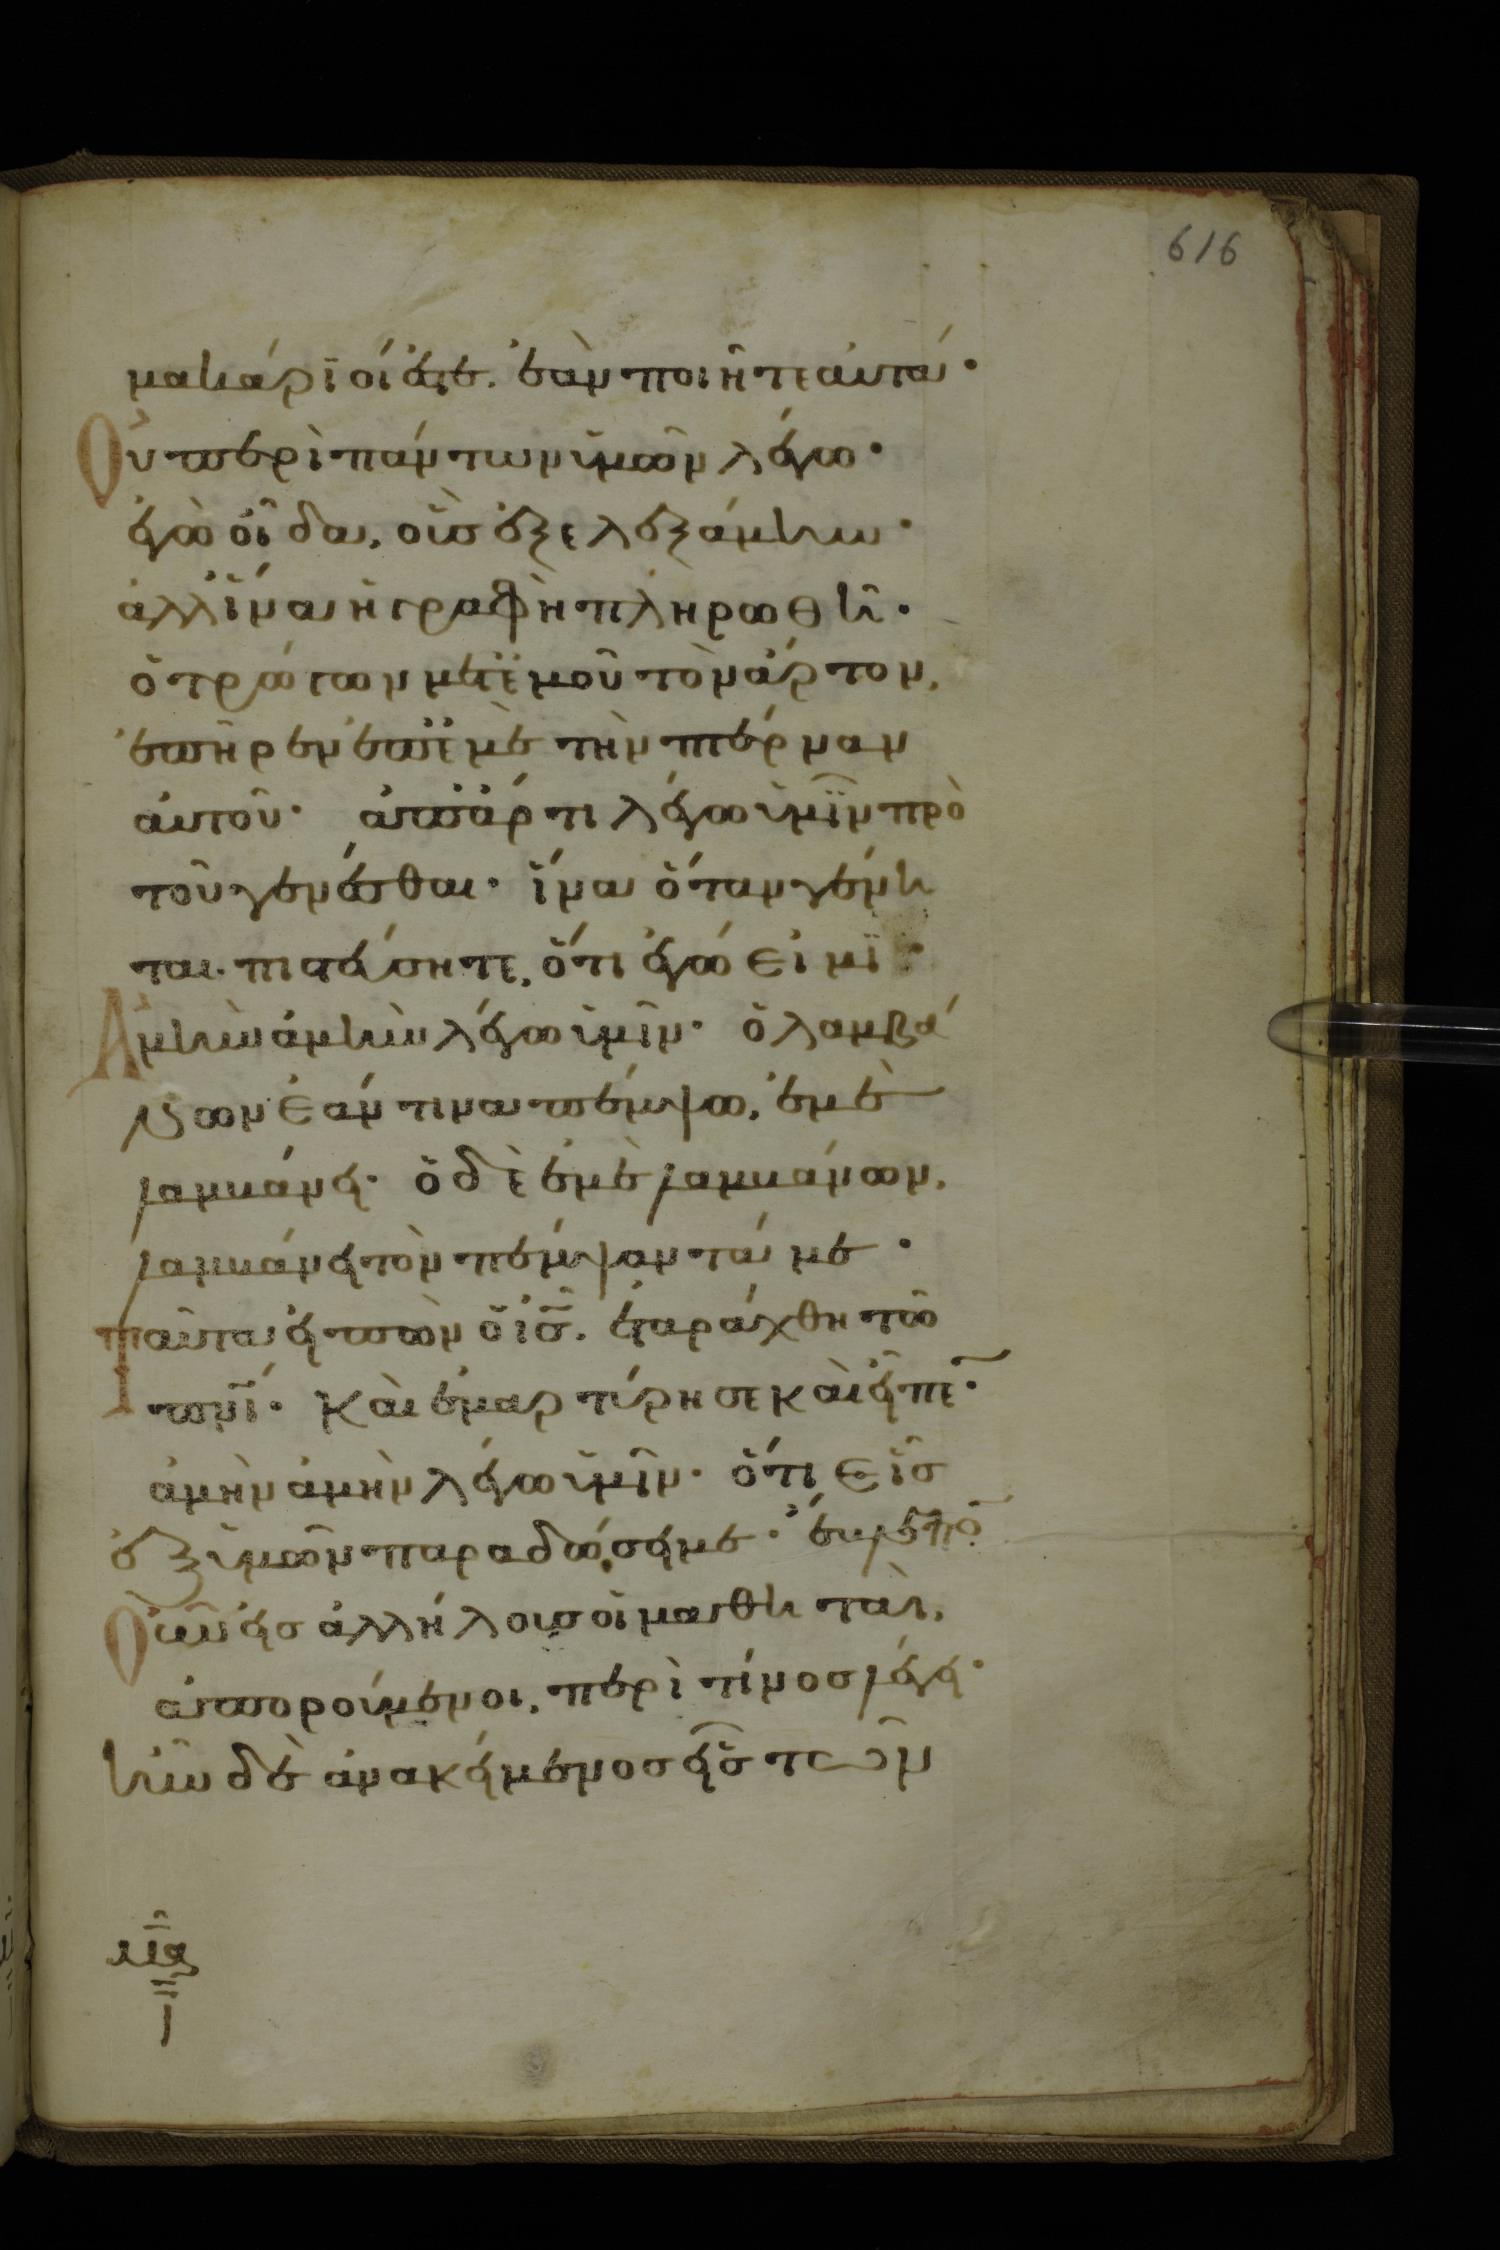 616
μακάριοί ἐστε. ἐὰν ποιῆτε αὐτά·
Οὐ περὶ πάντων ὑμῶν λέγω·
ἐγὼ οἶδα, οὓς ἐξελεξάμην·
ἀλλ' ἵνα ἡ γραφὴ πληρωθῆ·
ὁ τρώγων μετ' ἐμοῦ τὸν ἄρτον,
ἐπῆρεν ἐπ' ἐμὲ τὴν πτέρναν
αὐτοῦ· ἀπ' ἄρτι λέγω ὑμῖν πρὸ
τοῦ γενέσθαι· ἵνα ὅταν γένη
ται. πιστεύσητε, ὅτι ἐγώ εἰμι·
Ἀμὴν ἀμὴν λέγω ὑμῖν· ὁ λαμβά
νων ἐάν τινα πέμψω, ἐμὲ
λαμβάνει· ὁ δὲ ἐμὲ λαμβάνων,
λαμβάνει τὸν πέμψαντά με·
Ταῦτα εἰπὼν ὁ ις. ἐταράχθη τῶ
πνι· καὶ ἐμαρτύρησε καὶ εἶπε·
ἀμὴν ἀμὴν λέγω ὑμῖν· ὅτι εἷς
ἐξ ὑμῶν παραδώσει με·
Ἔβλεπον οὖν εἰς ἀλλήλους οἱ μαθηταὶ,
ἀπορούμενοι, περὶ τίνος λέγει·
ἦν δὲ ἀνακείμενος εἷς τῶν